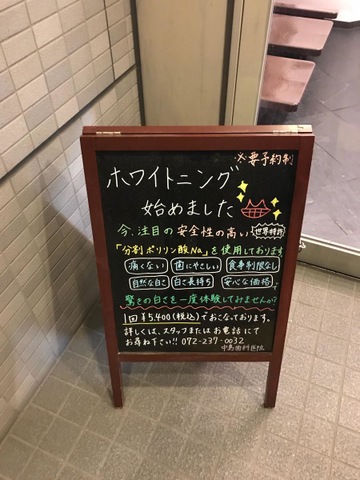 ※要予約制
ホワイトニング
始めました
今、注目の安全性の高い 世界特許
「分割ポリリン酸Na」を使用しております
痛くない 歯にやさしい 食事制限なし
自然な白さ 白さ長持ち 安心な価格 で
驚きの白さを一度体験してみませんか?
1回 ¥5,400(税込)でおこなっております。
詳しくは、スタッフまたは お電話にて
お尋ね下さい!! 072-237-0032
中島歯科医院